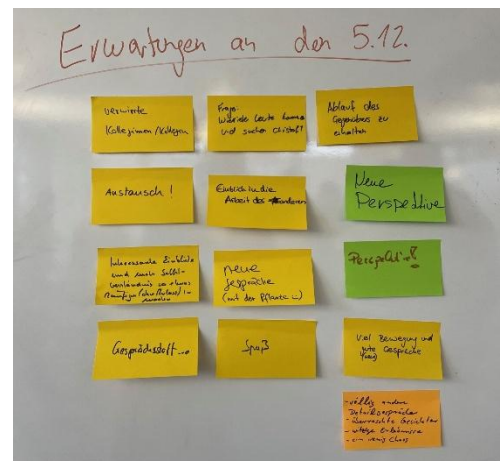 Erwartungen an den 5.12.
verwirrte
Kolleginnen/Kollegen
Frage:
Wieviele Leute kommen
und suchen Christof?
Ablauf des
Gegenübers zu
erhalten
Austausch!
Einblick in die
Arbeit des anderen
Neue
Perspektive
Interessante Einblicke
und mehr
neue
Gespräche
(mit der Pflanze
Perspektive!
Gesprächsstoff
Spaß
Viel Bewegung und
gute Gespräche
- völlig andere
- überraschte Gesichter
- witzige Erlebnisse
- ein wenig Chaos